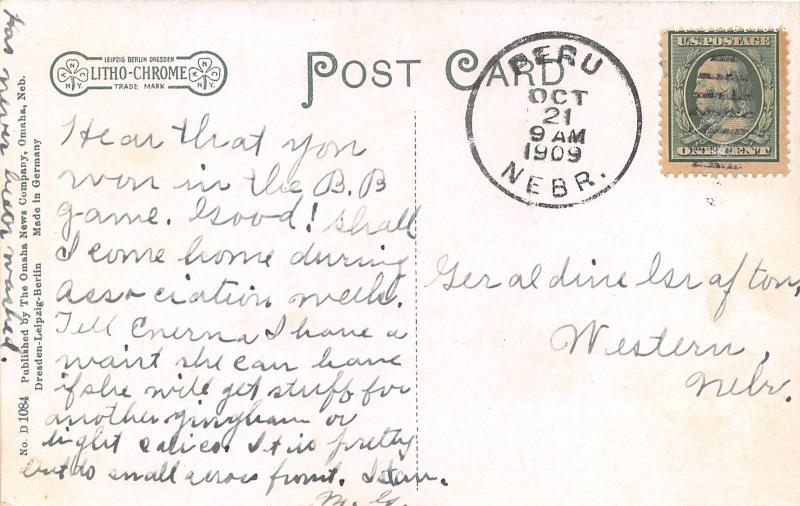 LEIPZIG BERLIN DRESDEN
LITHO-CHROME
TRADE MARK
POST CARD
PERU
OCT
21
9 AM
1909
NEBR.
U.S. POSTAGE
ONE CENT
No. D 1084 Published by The Omaha News Company, Omaha, Neb.
Dresden-Leipzig-Berlin Made in Germany
Hear that you
won in the B.B
game. Good! Shall
I come home during
association week.
Tell I have a
waist she can have
if she will get stuff for
another gingham or
light calico. It is pretty
but to small across front.
M. G.
has never been washed.
Geraldine Grafton,
Western,
Nebr.